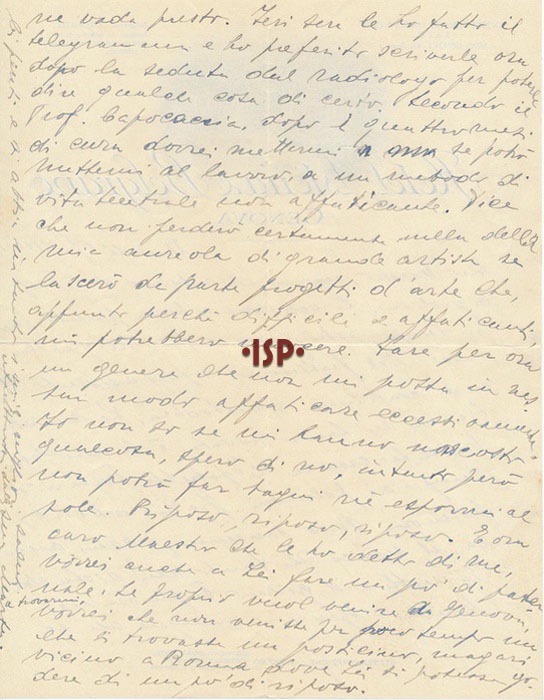 ne vada presto. Ieri sera le ho fatto il
telegramma e ho preferito scriverle ora
dopo la seduta dal radiologo per poterle
dire qualche cosa di certo. Secondo il
Prof. Capocaccia, dopo i quattro mesi
di cura dovrei mettermi se potrò
mettermi al lavoro, a un metodo di
vita teatrale non affaticante. Dice
che non perderò certamente nulla della
mia aureola di grande artista se
lascerò da parte progetti d'arte che,
appunto perché difficili e affaticanti,
mi potrebbero nuocere. Fare per ora
un genere che non mi possa in nes-
sun modo affaticare eccessivamente.
Io non so se mi hanno nascosto
qualcosa, spero di no, intanto però
non potrò far bagni né espormi al
sole. Riposo, riposo, riposo. E ora
caro Maestro che le ho detto di me,
vorrei anche a Lei fare un po' di pater-
nale. Se proprio vuol venire a Genova,
trovarmi,
vorrei che non venisse per poco tempo ma
che si trovasse un posticino, magari
vicino a Roma dove Lei si potesse go-
dere di un po' di riposo.
ISP